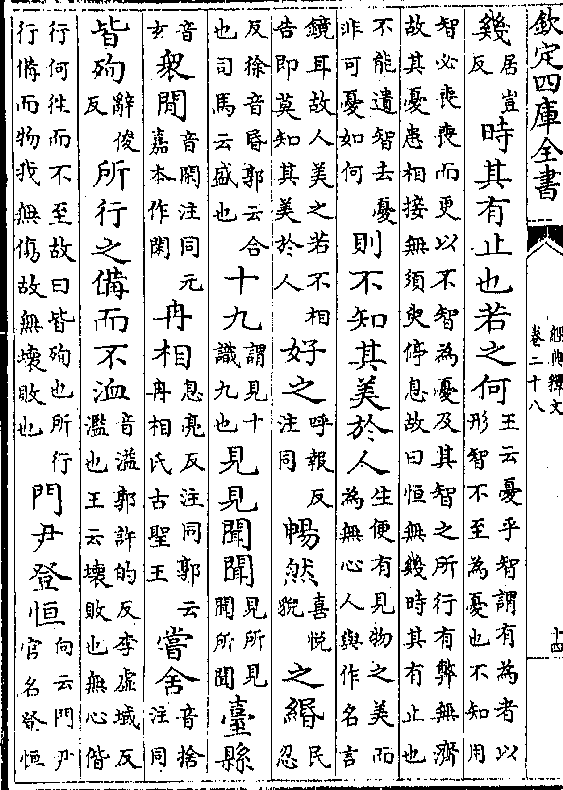 欽定四庫全書
經典釋文
卷二十八
十四
幾居豈反時其有止也若之何王云憂乎智謂有為者以形智不至為憂也不知用
智必喪喪而更以不智為憂及其智之所行有弊無濟故其憂患相接無須臾停息故曰恒無幾時其有止也
不能遺智去憂非可憂如何則不知其美於人生便有見物之美而為無心人與作名言
鏡耳故人美之若不相告即莫知其美於人好之呼報反注同暢然喜悅貌之緡民忍
反徐音昏郭云合也司馬云盛也十九謂見十識九也見見聞聞見所見聞所聞臺縣
音玄衆閒音閑注同元嘉本作閑冉相息亮反注同郭云冉相氏古聖王嘗舍音捨注同
皆殉辭俊反所行之備而不洫音溢郭許的反李虛域反濫也王云壞敗也無心偕
行何往而不至故曰皆殉也所行行備而物我無傷故無壞敗也門尹登恒向云門尹官名登恒